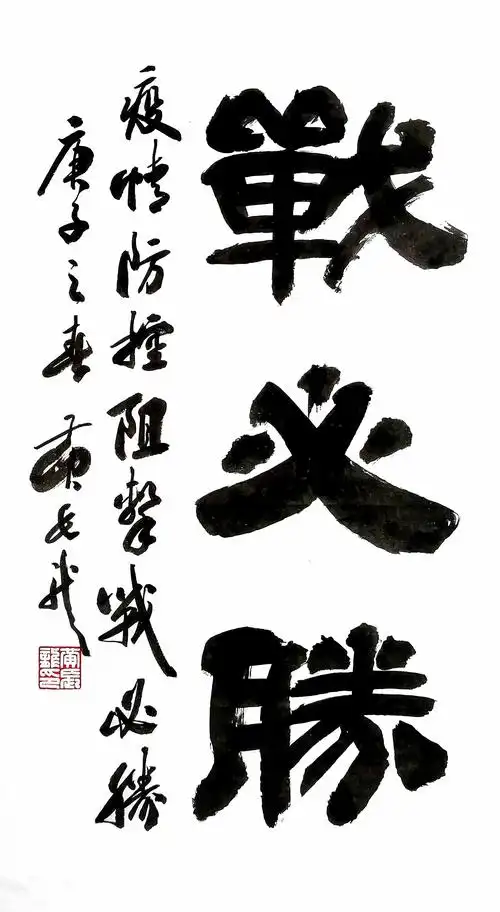 戰必勝
疫情防控阻擊戰必勝
庚子之春 黄